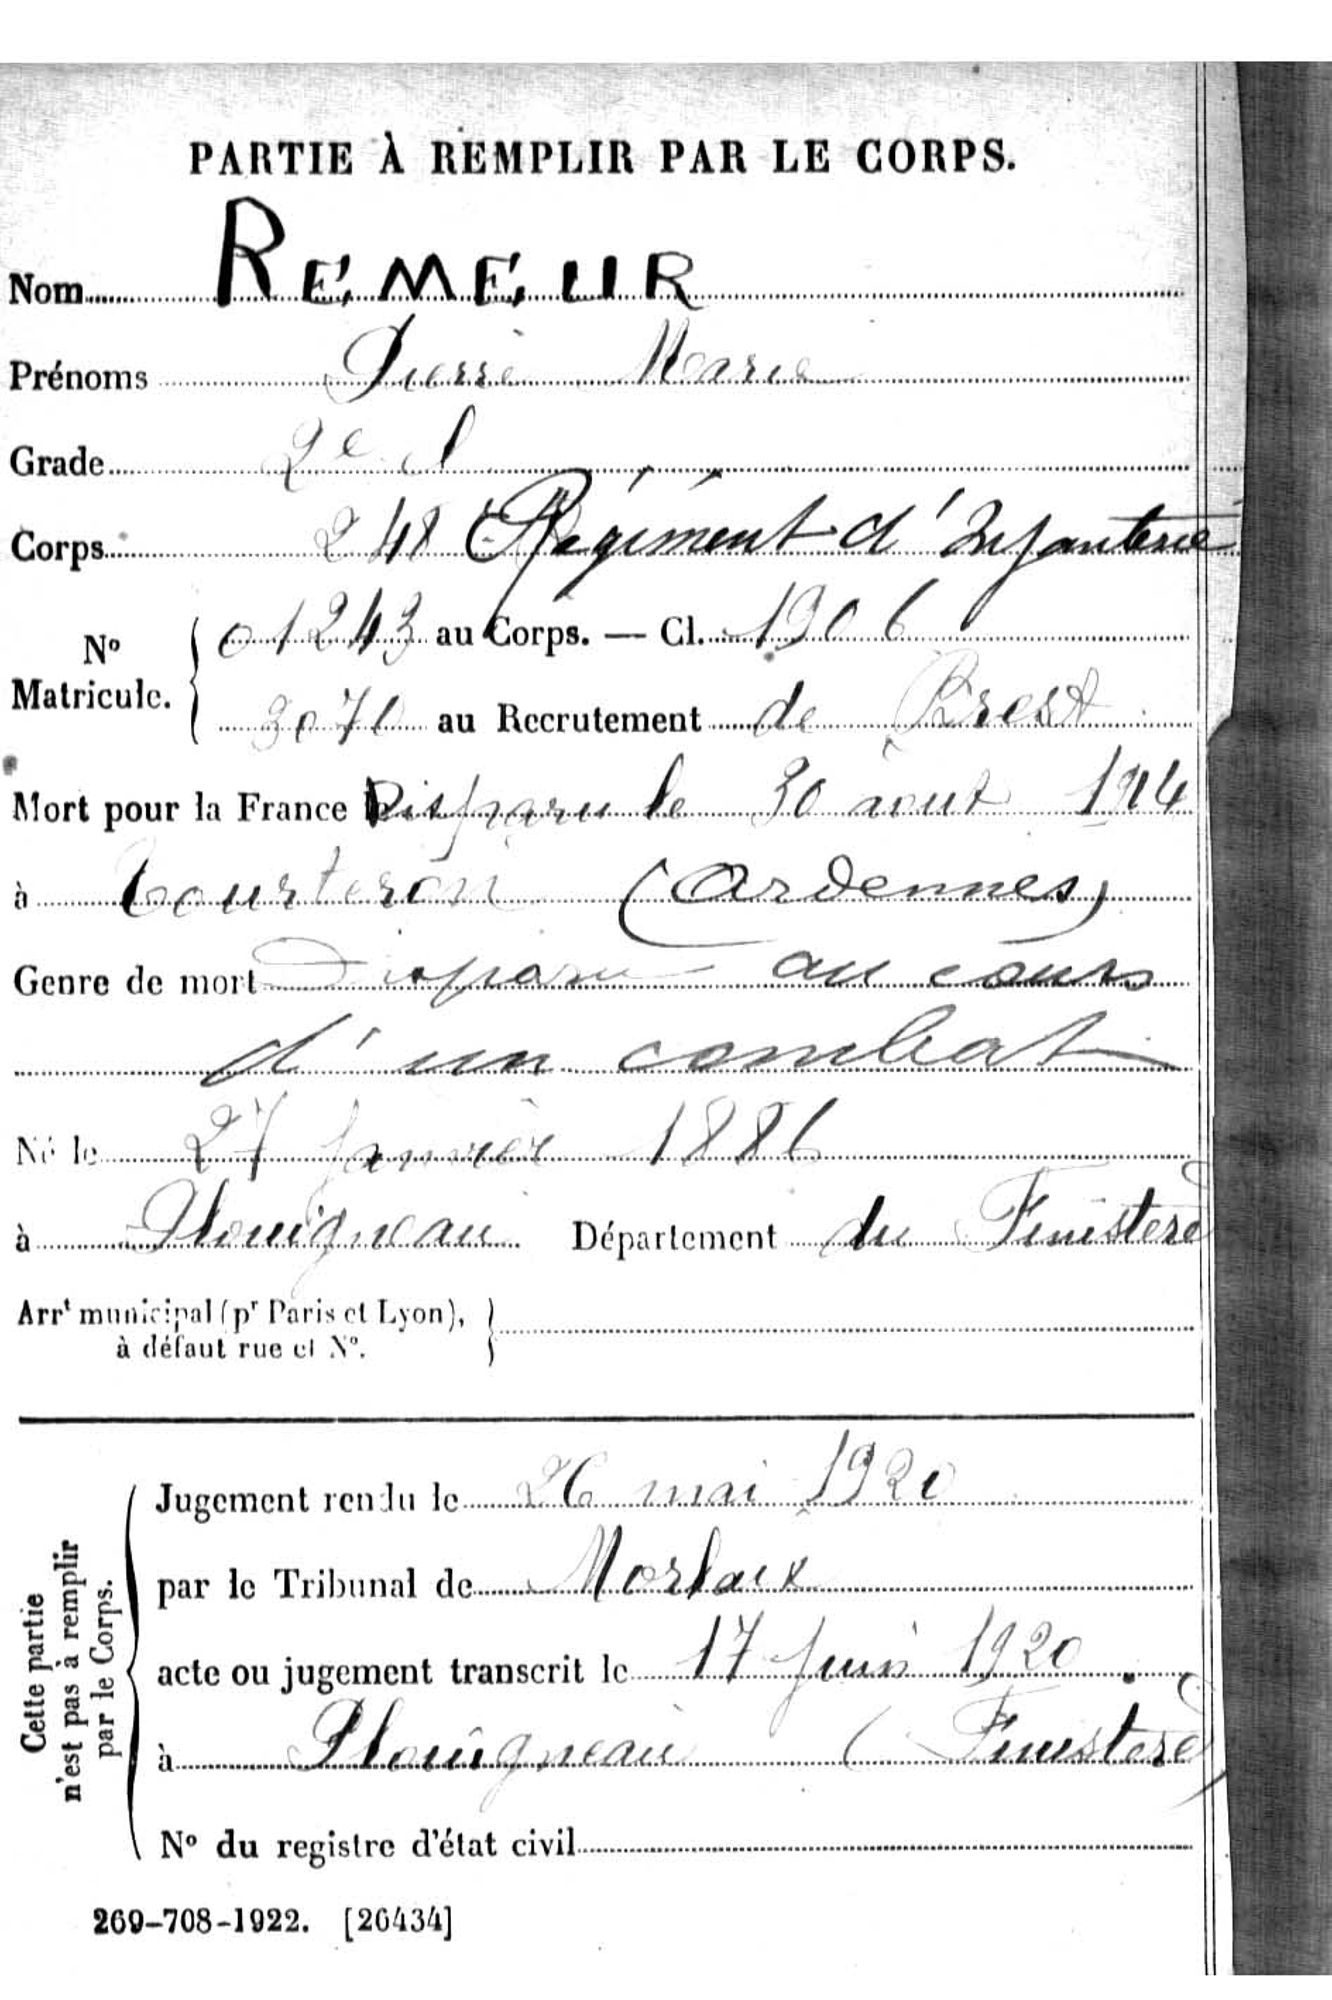 PARTIE À REMPLIR PAR LE CORPS.
Nom REMEUR
Prénoms Pierre Marie
Grade 2e cl
Corps 248 e Régiment d'Infanterie
No Matricule. { 01243 au Corps. — Cl. 1906
au Recrutement de Brest
Mort pour la France Disparu le 30 aout 1914
à Tourteron (Ardennes)
Genre de mort Disparu au cours
d'un combat
Né le 27 Janvier 1886
à Plouigneau Département du Finistère
Arrt municipal (pr Paris et Lyon), }
à défaut rue et No.
Cette partie
n'est pas à remplir
par le Corps.
Jugement rendu le 26 mai 1920
par le Tribunal de Morlaix
acte ou jugement transcrit le 17 Juin 1920.
à Plouigneau (Finistère)
No du registre d'état civil
269-708-1922. [26434]